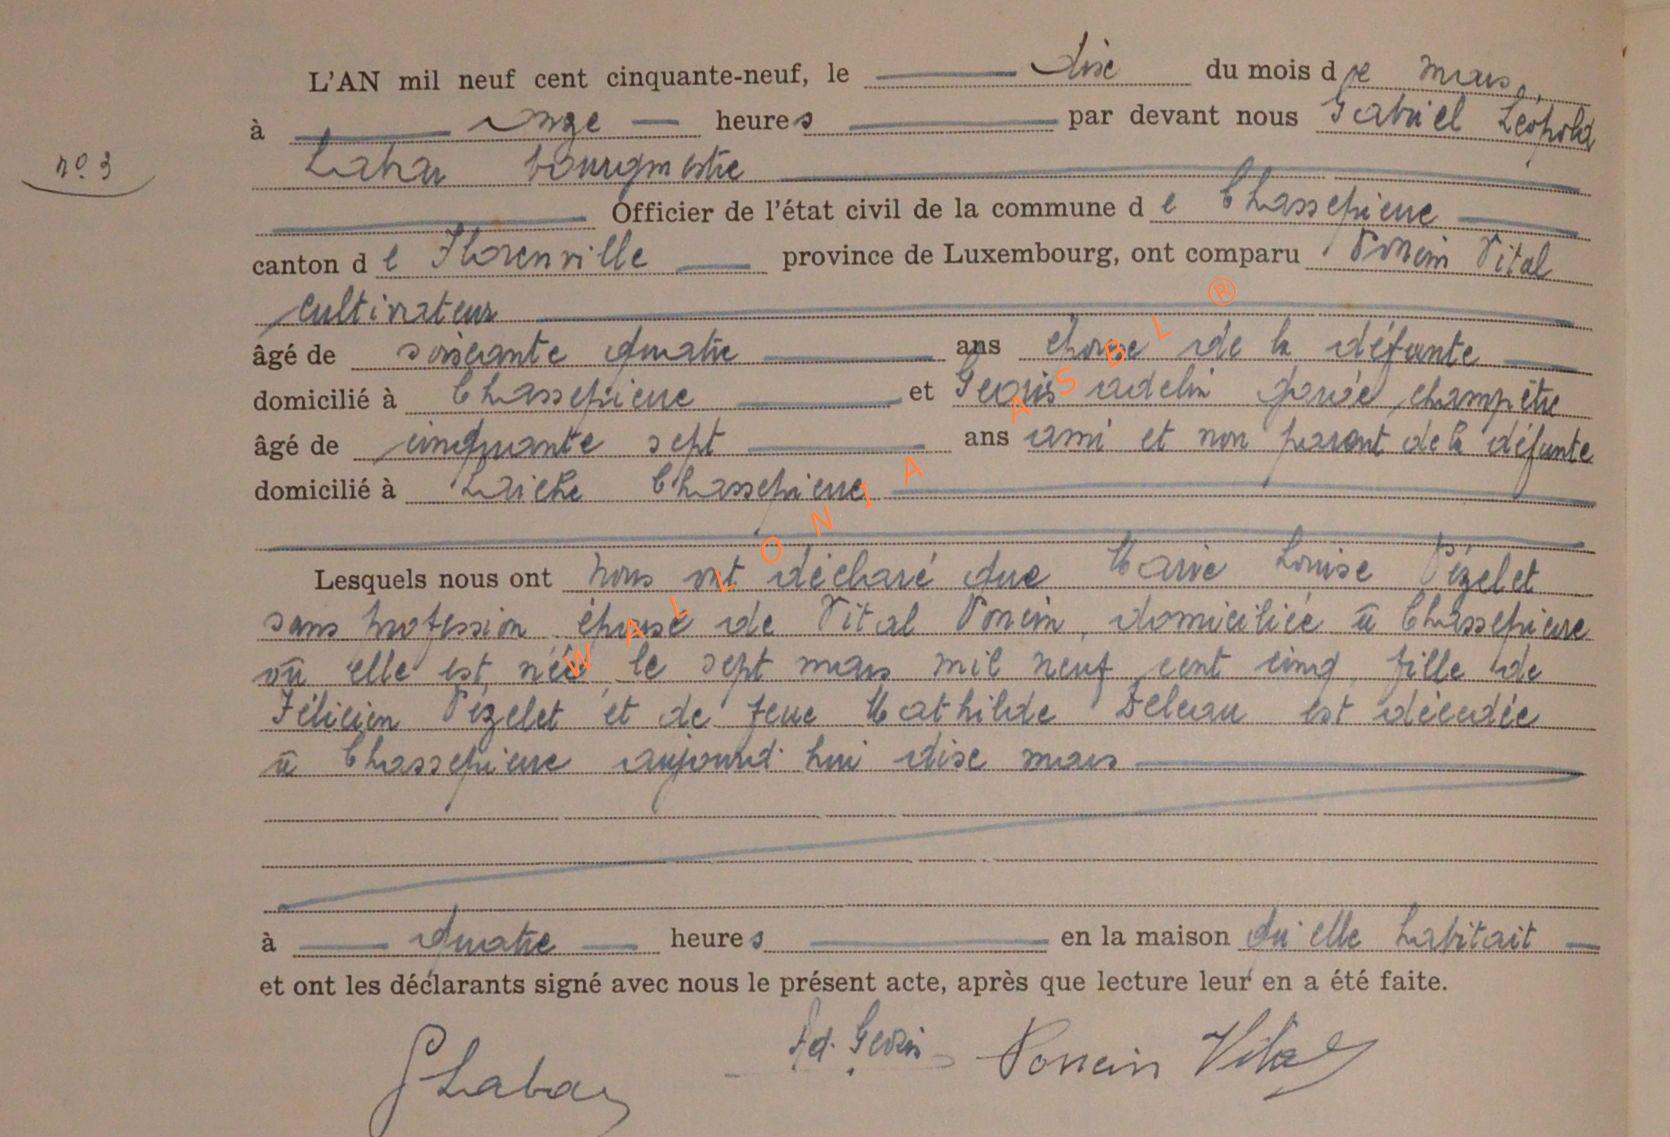 L'AN mil neuf cent cinquante-neuf, le dix du mois de mars,
à onze heures par devant nous Gabriel Léopold
nº 3
Labar bourgmestre
Officier de l'état civil de la commune de Chassepierre
canton de Florenville province de Luxembourg, ont comparu Poncin Vital
cultivateur
âgé de soixante quatre ans époux de la défunte
domicilié à Chassepierre et adelin garde champêtre
âgé de cinquante sept ans ami et non parent de la défunte
domicilié à Laiche Chassepierre
Lesquels nous ont nous ont déclaré que Marie Louise Pézelet
sans profession épouse de Vital Poncin, domiciliée à Chassepierre
où elle est née le sept mars mil neuf cent cinq, fille de
Félicien Pézelet et de feue Mathilde Deleau est décédée
à Chassepierre aujourd'hui dix mars
à quatre heures en la maison qu'elle habitait
et ont les déclarants signé avec nous le présent acte, après que lecture leur en a été faite.
GLabar Ad. Poncin Vital
WALLONIA ASBL ®